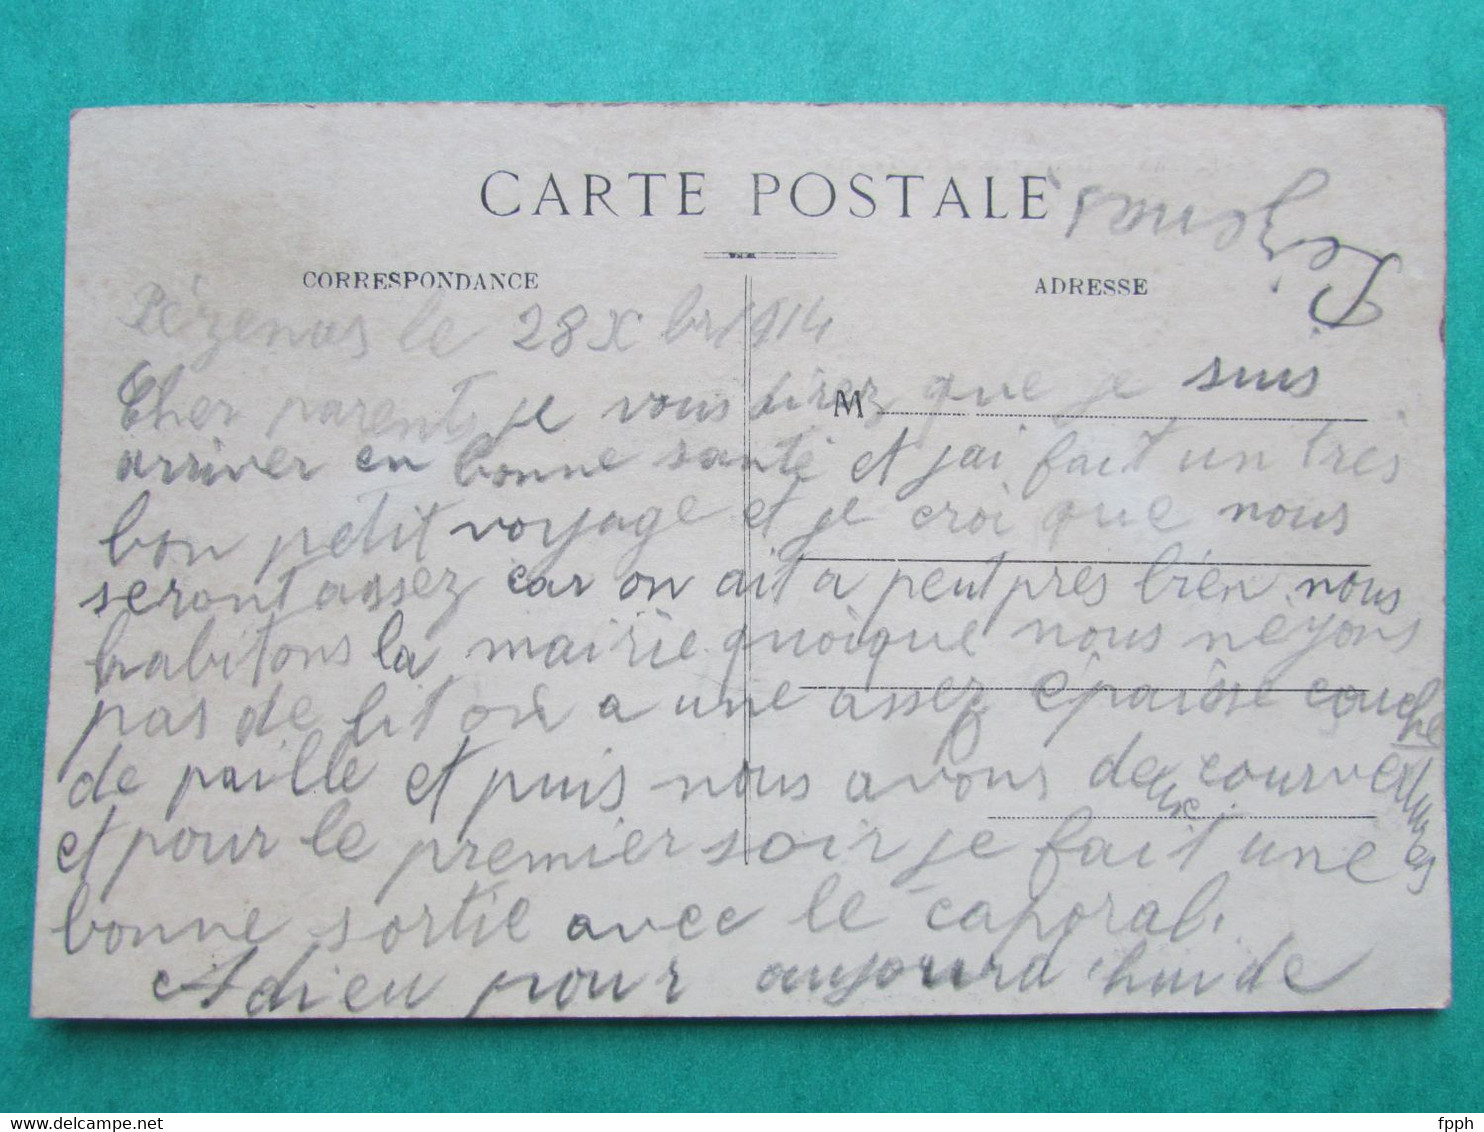 CARTE POSTALE
CORRESPONDANCE
ADRESSE
Pézenas le 28 X br 1914
M
Cher parents je vous direz que je suis
arriver en bonne santé et jai fait un très
bon petit voyage et je croi que nous
seront assez car on ait a peut près bien nous
habitons la mairie quoique nous néyons
pas de lit on a une assez épaisse couche
de paille et puis nous avons deux couvertures
et pour le premier soir je fait une
bonne sortie avec le caporal.
Adieu pour aujourd'hui de
fpph